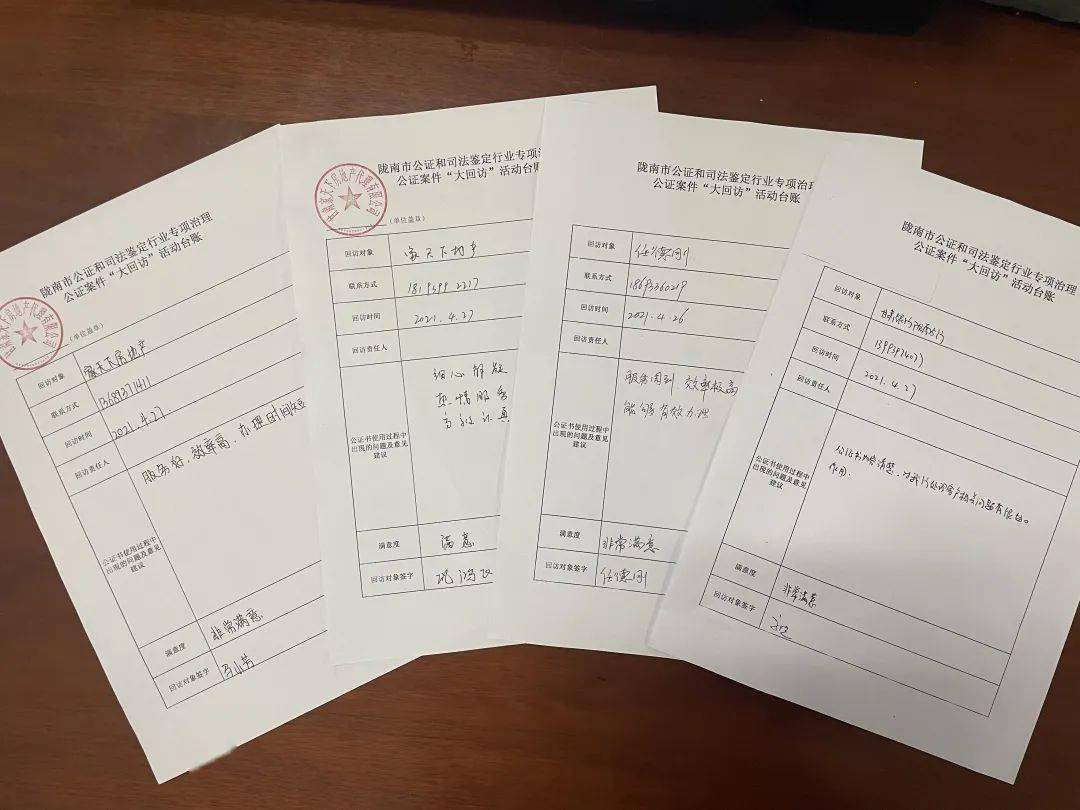 陇南市公证和司法鉴定行业专项治理
公证案件“大回访”活动台账
(单位盖章)
回访对象 家天下房地产
联系方式 13689371411
回访时间 2021.4.27
回访责任人
公证书使用过程中
出现的问题及意见
建议
服务好、效率高、办理时间短
满意度 非常满意
回访对象签字 马小芳
陇南市公证和司法鉴定行业专项治
公证案件“大回访”活动台账
甘肃家天下房地产代理有限公司
(单位盖章)
回访对象 家天下
联系方式
回访时间 2021.4.27
回访责任人
公证书使用过程中
出现的问题及意见
建议
细心解疑
热情服务
认真
满意度 满意
回访对象签字
陇南市公证和司法鉴定行业专项治理
公证案件“大回访”活动台账
回访对象 任德刚
联系方式 18693260219
回访时间 2021.4.26
回访责任人
公证书使用过程中
出现的问题及意见
建议
服务周到 效率极高
能够有效办理
满意度 非常满意
回访对象签字 任德刚
陇南市公证和司法鉴定行业专项治理
公证案件“大回访”活动台账
回访对象
联系方式 13993974077
回访时间 2021.4.27
回访责任人
公证书使用过程中
出现的问题及意见
建议
公证书内容清楚、对我行处理客户相关问题有很好。
作用.
满意度 非常满意
回访对象签字